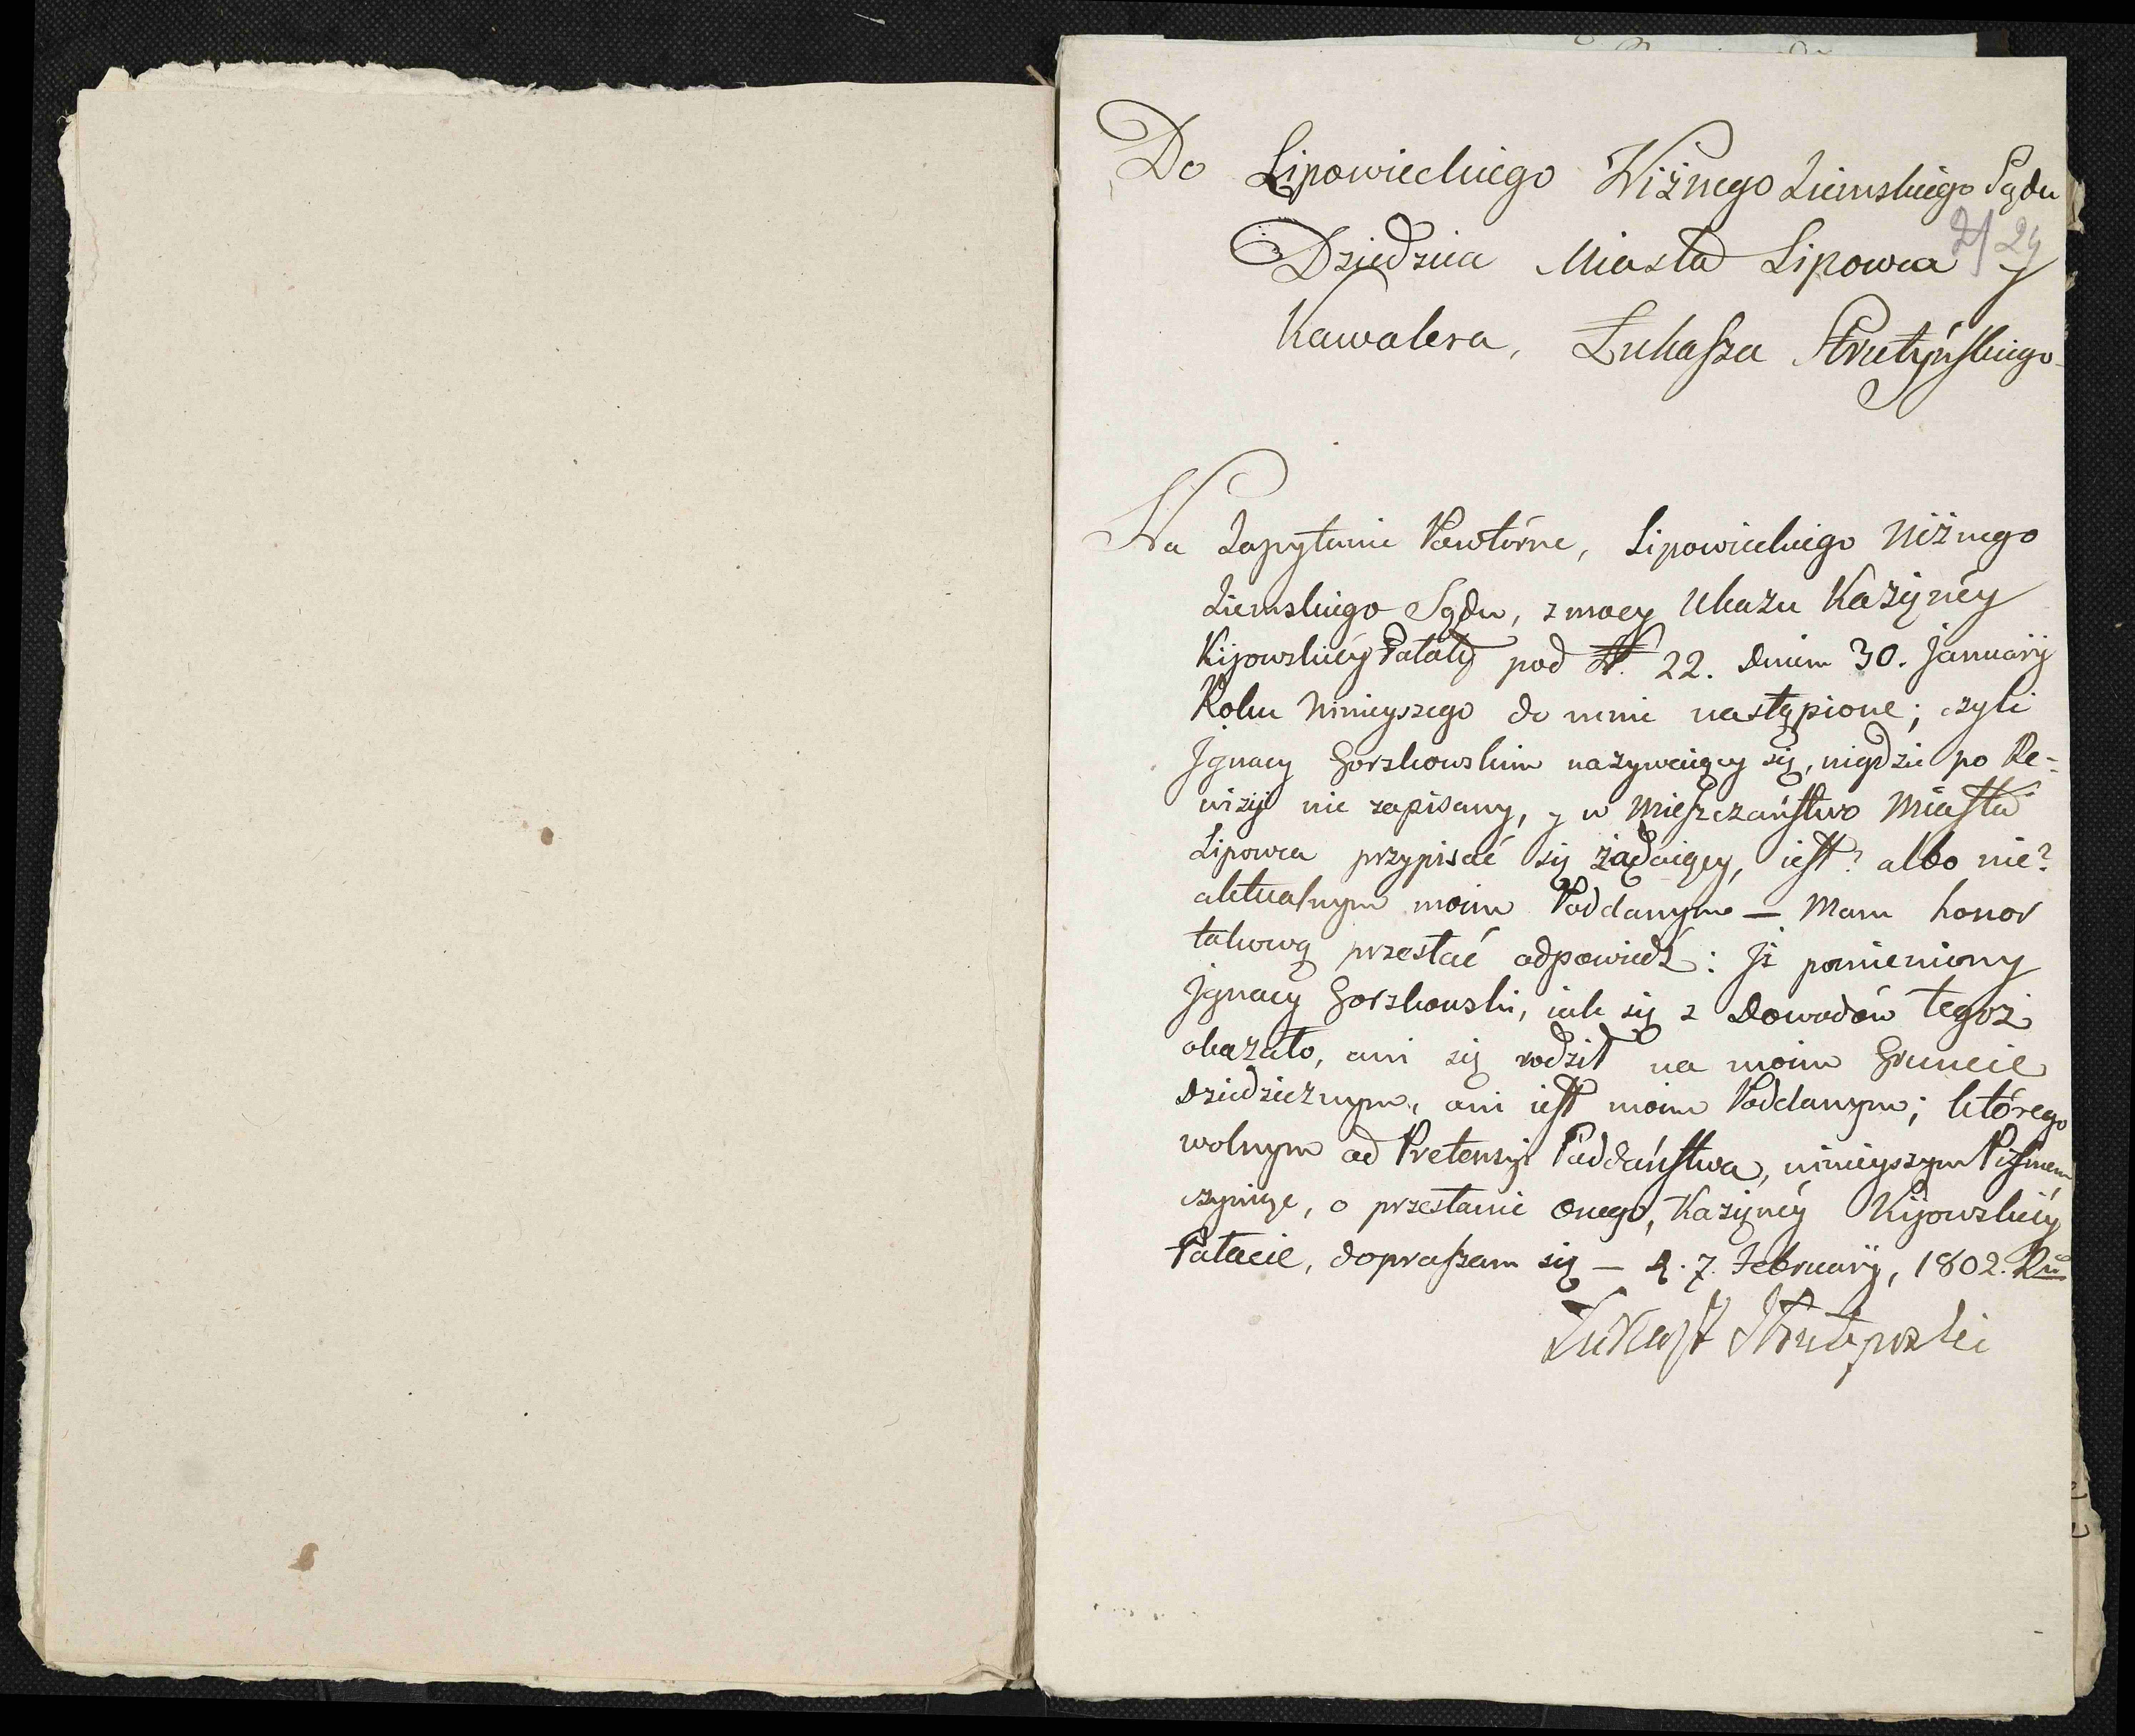 Do Lipowieckiego Niżnego Ziemskiego Sądu
21 24
Dziedzica Miasta Lipowca y
Kawalera, Łukaſza Strutyńſkiego
Na Zapytanie Powtórne, Lipowieckiego Niżnego
Ziemskiego Sądu, z mocy Ukazu Kazięnéy
Kijowskiéy Pałaty pod N. 22. Dniem 30. Januarÿ
Roku Ninieyszego do mnie nastąpione; czyli
Jgnacy Gorzkowskim nazywaiący się, nigdzie po Re=
wizÿi nie zapisany, y w Mieſzczańſtwo Miaſta
Lipowca przypisać się żądaiący, ieſt? albo nie?
aktualnym moim Poddanym — Mam honor
takową przesłać odpowiedź: Jż pomieniony
Jgnacy Gorzkowski, iak się z Dowodów tegoż
okazało, ani się rodził na moim Gruncie
Dziedzicznym, ani ieſt moim Poddanym; którego
wolnym od Pretensÿi Poddańſtwa, ninieyszym Piſmem
czynię, o przesłanie onego, Kazięnéy Kijowskiéy
Pałacie, dopraſzam się — d. 7. Februarÿ, 1802. Ru
Łukaſz Strutynski